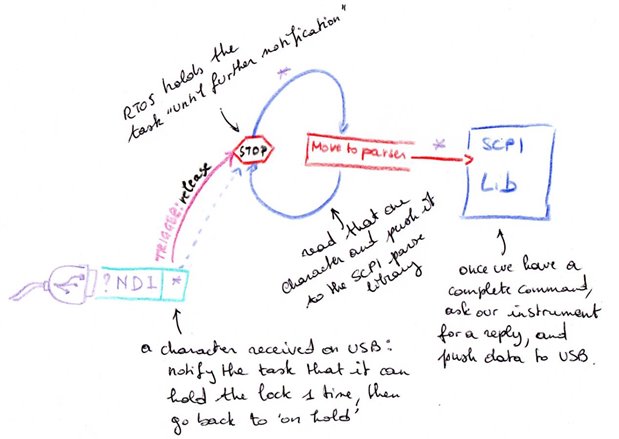 RTOS holds the
task "until further notification"
*
STOP
Move to parser
*
SCPI
Lib
TRIGGER: release
read that one
character and push it
to the SCPI parse
library
once we have a
complete command,
ask our instrument
for a reply, and
push data to USB.
?NDI *
a character received on USB:
notify the task that it can
hold the lock 1 time, then
go back to 'on hold'